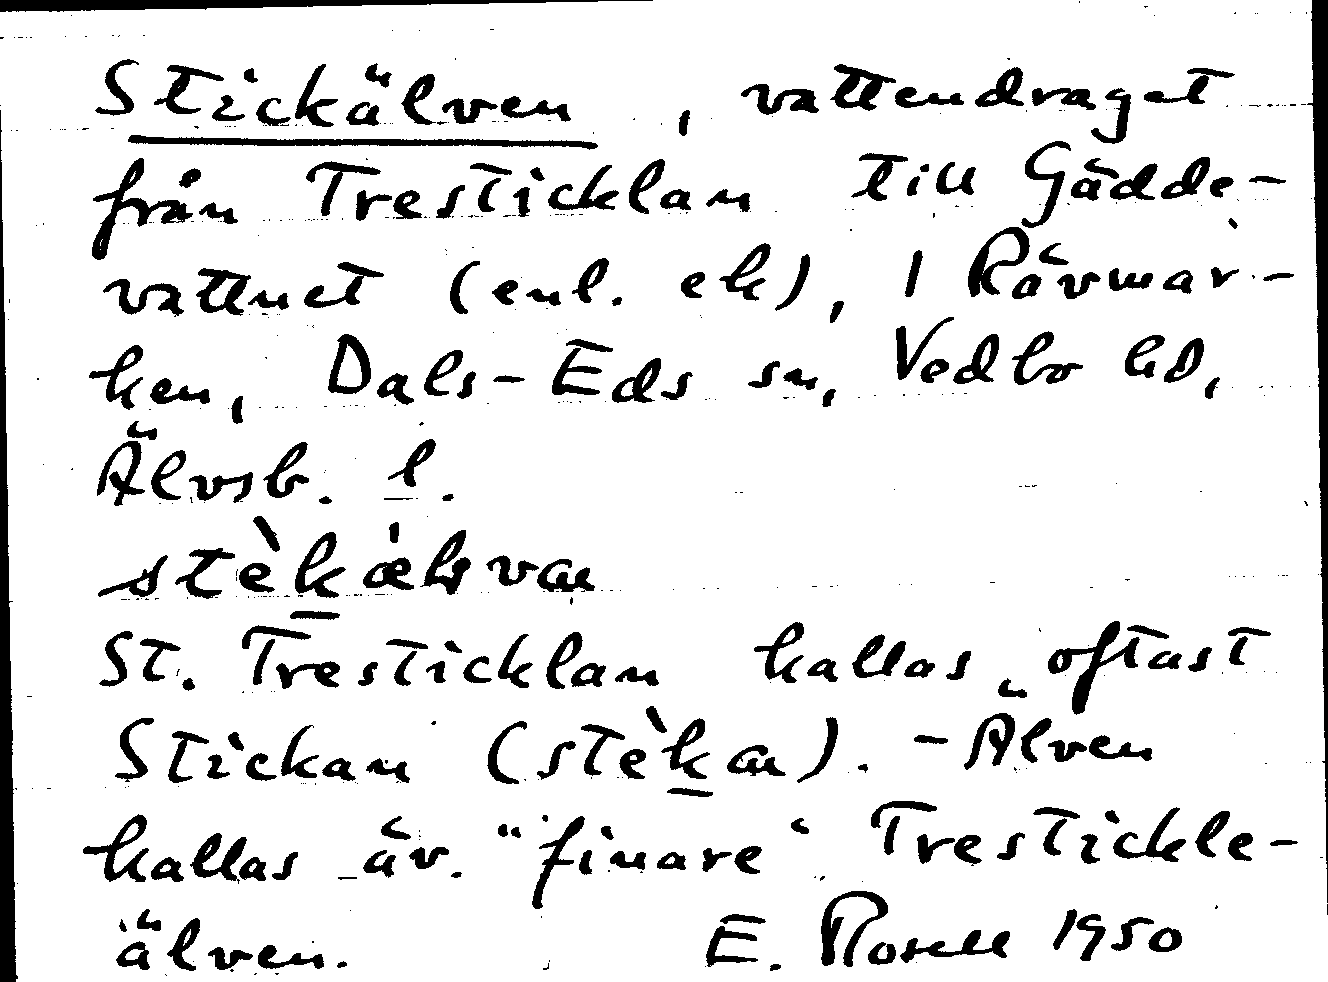 Stickälven, vattendraget
från Tresticklan till Gädde-
vattnet (enl. ek), i Rävmar-
ken, Dals-Eds sn, Vedbo hd,
Älvsb. l.
St. Tresticklan kallas oftast
Stickan (stèkan). - Älven
kallas äv. "finare" Trestickle-
älven. E. Rosell 1950